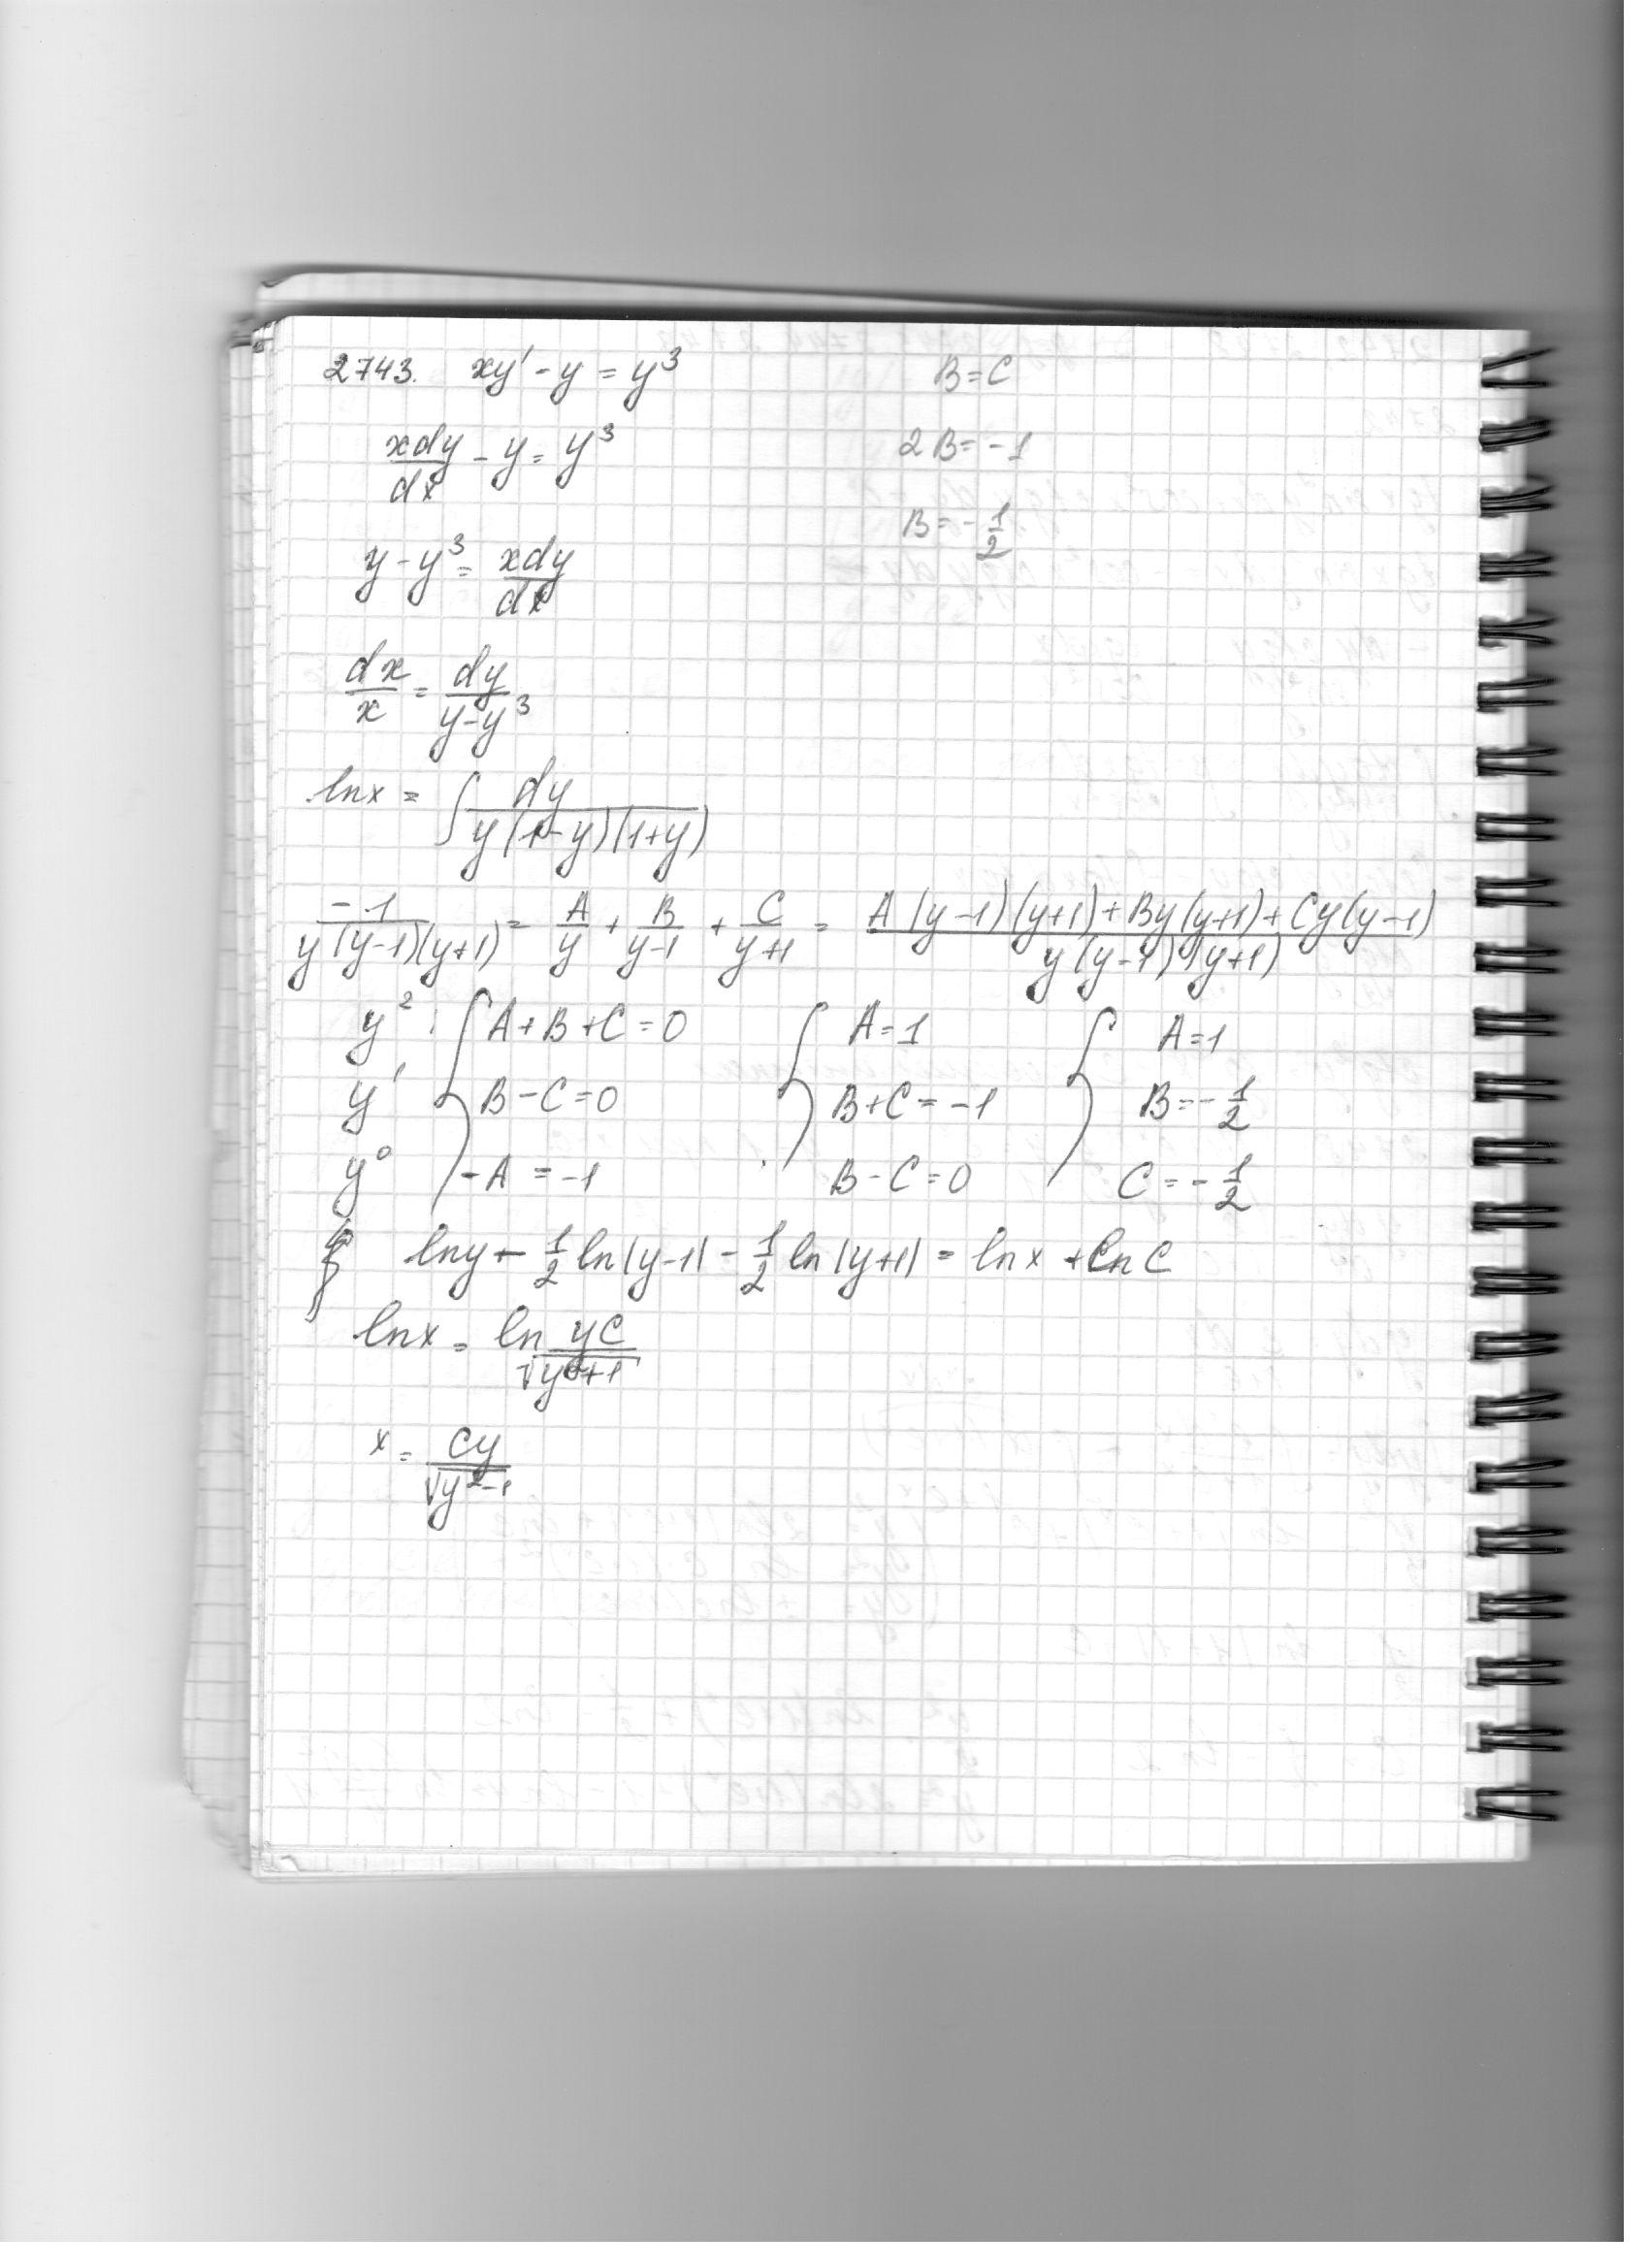 2743. xy' - y = y³
B = C
xdy/dx - y = y³
2B = -1
B = -1/2
y - y³ = xdy/dx
dx/x = dy/(y - y³)
ln x = ∫ dy/(y(1-y)(1+y))
-1/(y(y-1)(y+1)) = A/y + B/(y-1) + C/(y+1) = (A(y-1)(y+1) + By(y+1) + Cy(y-1))/(y(y-1)(y+1))
y²: { A+B+C = 0 { A = 1 { A = 1
y¹ B - C = 0 B + C = -1 B = -1/2
y⁰ -A = -1 B - C = 0 C = -1/2
ln y - 1/2 ln|y-1| - 1/2 ln|y+1| = ln x + ln C
ln x = ln yC/√(y²+1)
x = Cy/√(y²-1)